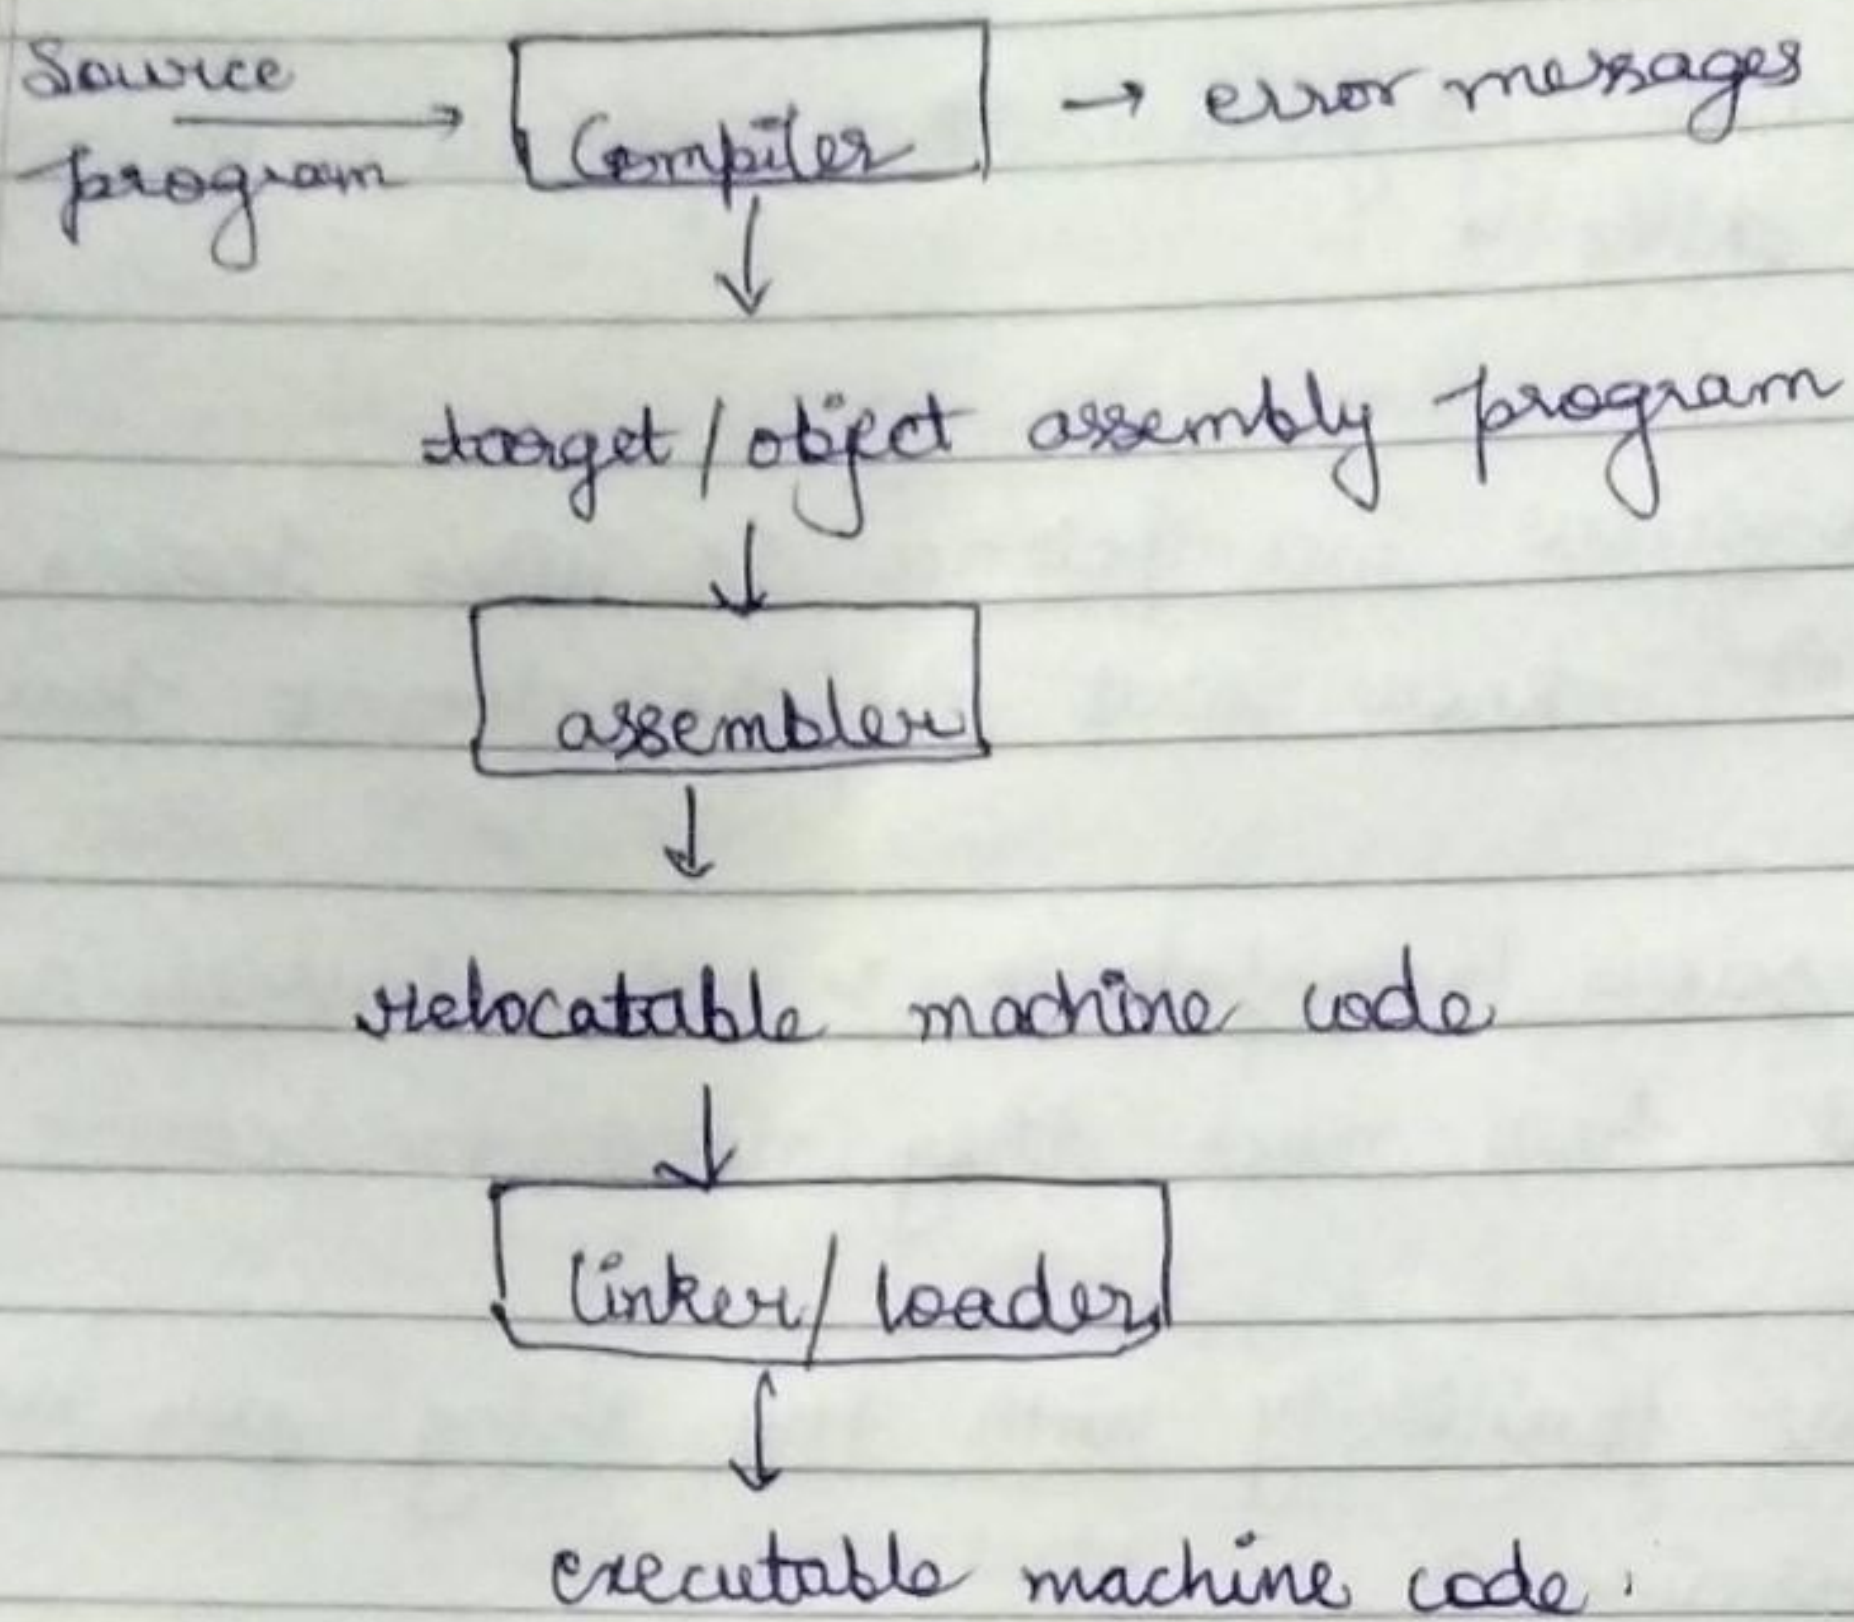 Source
program
Compiler
→ error messages
target / object assembly program
assembler
relocatable machine code
linker / loader
executable machine code.